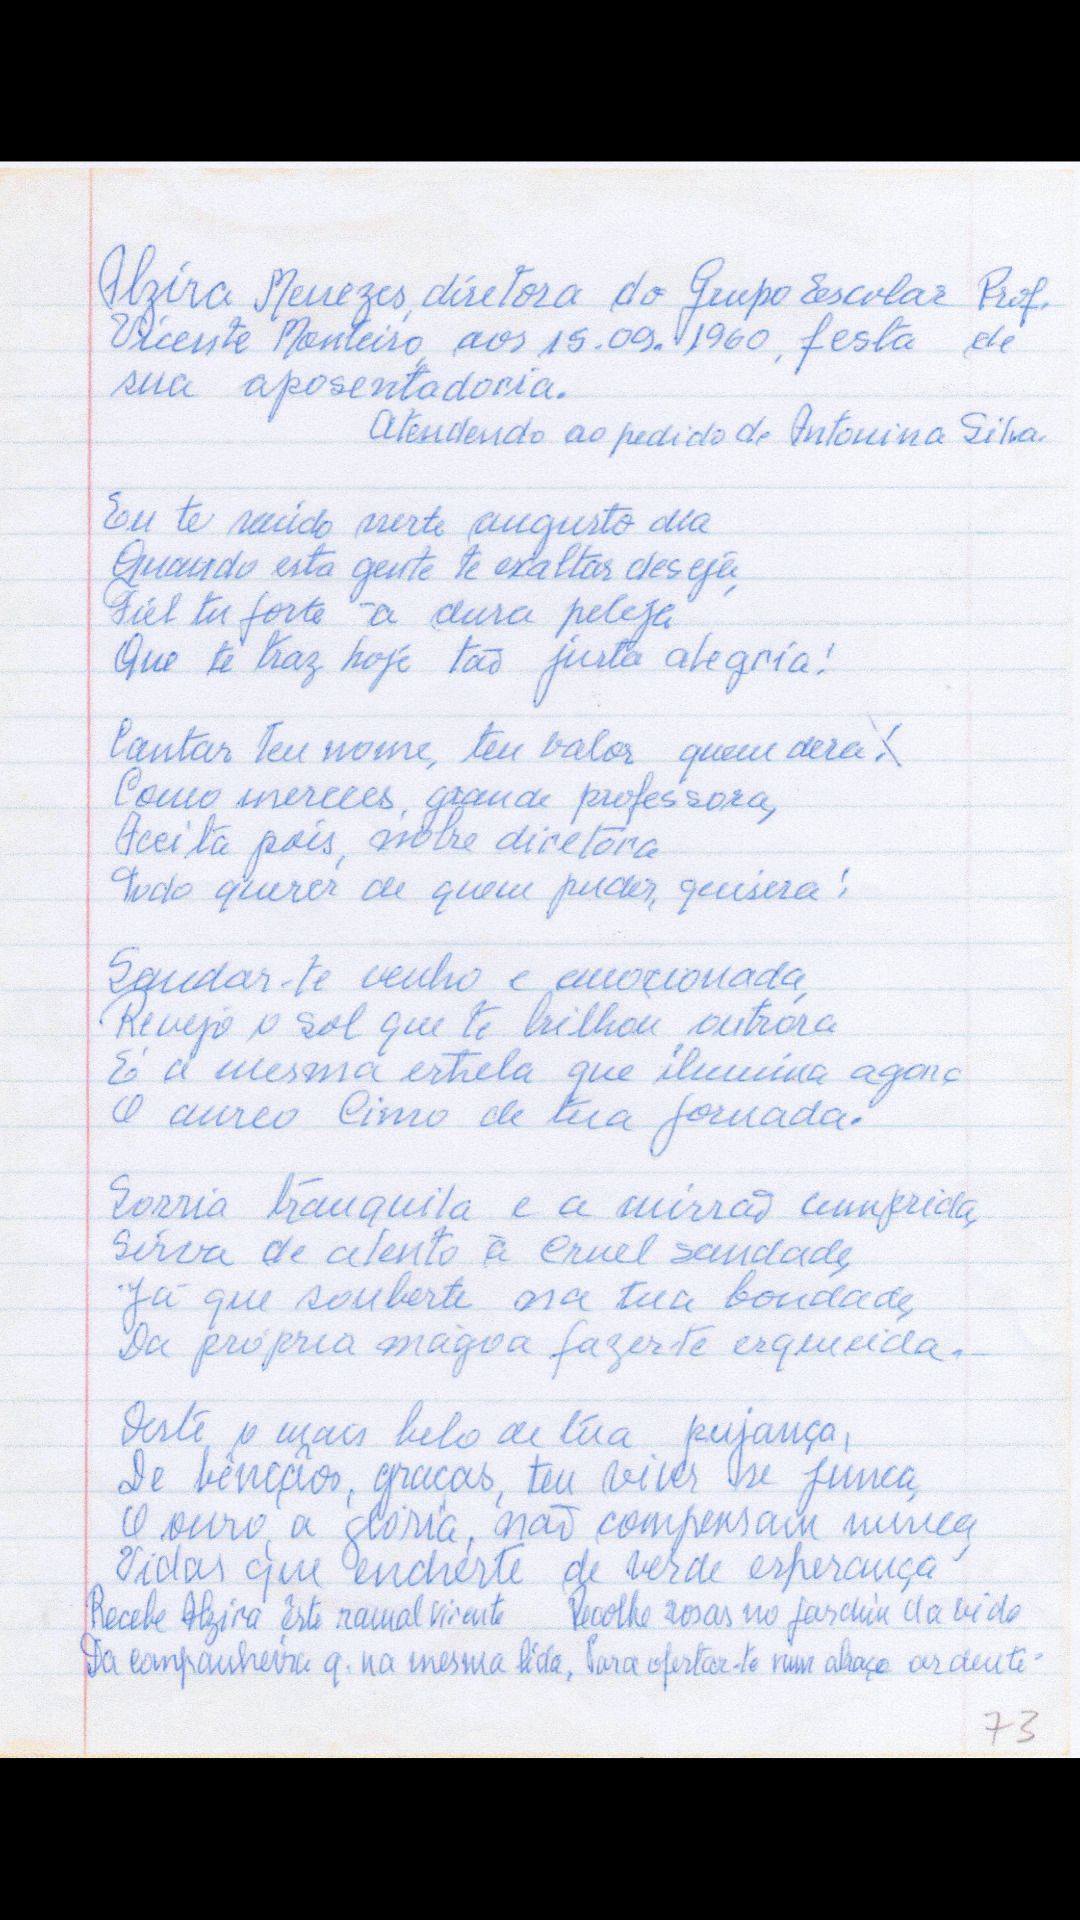 Alzira Menezes, diretora do Grupo Escolar Prof.
Vicente Monteiro, aos 15.09.1960, festa de
sua aposentadoria.
Atendendo ao pedido de Antonina Silva.
Eu te saúdo neste augusto dia
Quando esta gente te exaltar deseja,
Fiel tu forte à dura peleja
Que te traz hoje tão justa alegria!
Cantar teu nome, teu valor quem dera!
Como mereces, grande professora,
Aceita pois, nobre diretora
Todo querer de quem puder, quisera!
Saudar-te venho e emocionada,
Revejo o sol que te brilhou outrora
É a mesma estrela que ilumina agora
O aureo cimo de tua jornada.
Sorria tranquila e a missão cumprida,
Sirva de alento à cruel saudade,
Já que soubeste na tua bondade,
Da própria mágoa fazer-te esquecida.
Deste o mais belo de tua pujança,
De bênçãos, graças, teu viver se junca,
O ouro, a glória, não compensam nunca,
Vidas que encheste de verde esperança
Recebe Alzira este ramalvicente Recolhe rosas no jardim da vida
Da companheira q. na mesma lida, Para ofertar-te num abraço ardente.
73